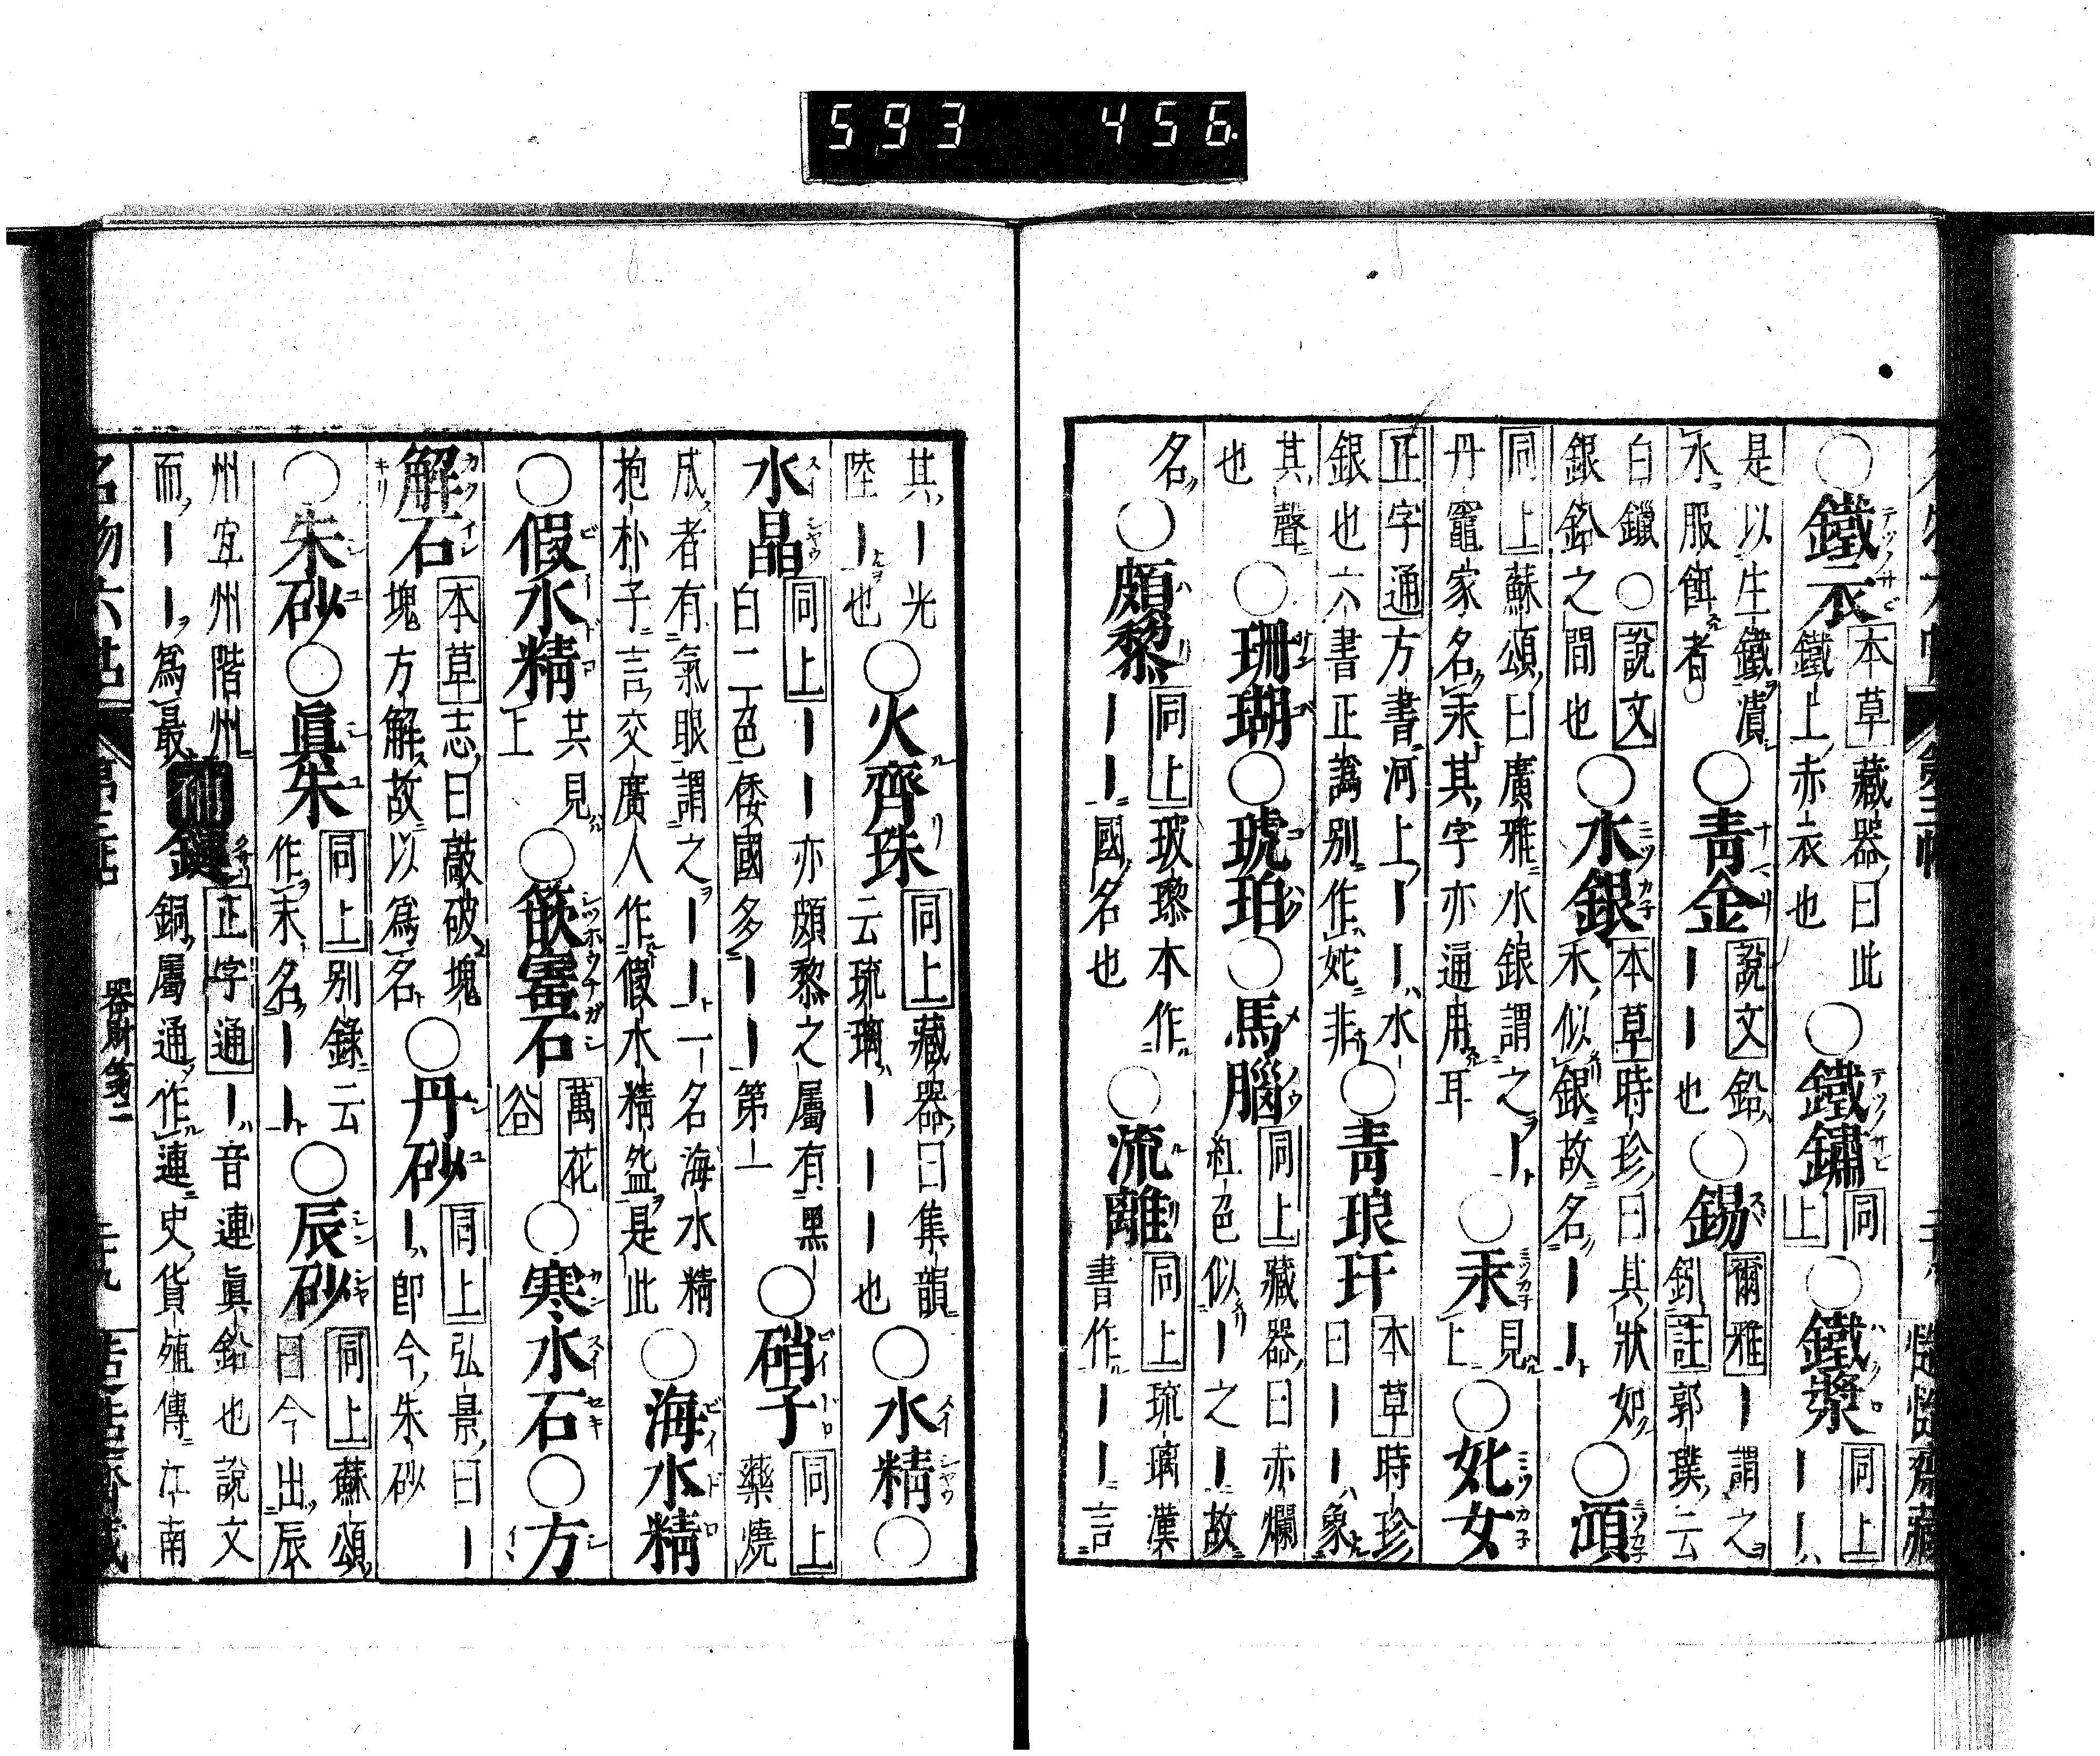 593 456.
○鐵衣 本草 藏器曰此鐵上赤衣也 ○鐵鏽 同上 ○鐵漿 同上 ーーハ
是以生鐵漬水服餌者 ○青金 說文 ーー鉛也 ○錫 爾雅 ー謂之鈏 註 郭璞云
白鑞○ 說文 銀鉛之間也 ○水銀 本草 時珍曰其狀如水似銀故名ーー ○澒
同上 蘇頌曰廣雅水銀謂之ー丹竈家名汞其字亦通用耳 ○汞 見上 ○姹女
正字通 方書河上ーーハ水銀也六書正譌別作姹非 ○青琅玕 本草 時珍曰ーーハ象
其聲也 ○珊瑚 ○琥珀 ○馬腦 同上 藏器曰赤爛紅色似ー之ー故
名 ○頗黎 同上 玻瓈本作ーー國名也 ○流離 同上 琉璃漢書作ーー言
其ー光陸ー也 ○火齊珠 同上 藏器曰集韻云琉璃ーーーー也 ○水精 ○
水晶 同上 ーー亦頗黎之屬有黑白二色倭國多ーー第一 ○硝子 同上 藥燒
成者有氣眼謂之ーー一名海水精抱朴子言交廣人作假水精盌是此 ○海水精
○假水精 共見上 ○篏窰石 萬花谷 ○寒水石 ○方
解石 本草 志曰敲破塊塊方解故以爲名 ○丹砂 同上 弘景曰ーー即今朱砂
○朱砂 ○眞朱 同上 別錄云作末名ーー ○辰砂 同上 蘇頌曰今出辰
州宜州階州而ーー爲最 補 鏈 正字通 ーハ音連眞鉛也說文銅屬通作連史貨殖傳江南
器財第二